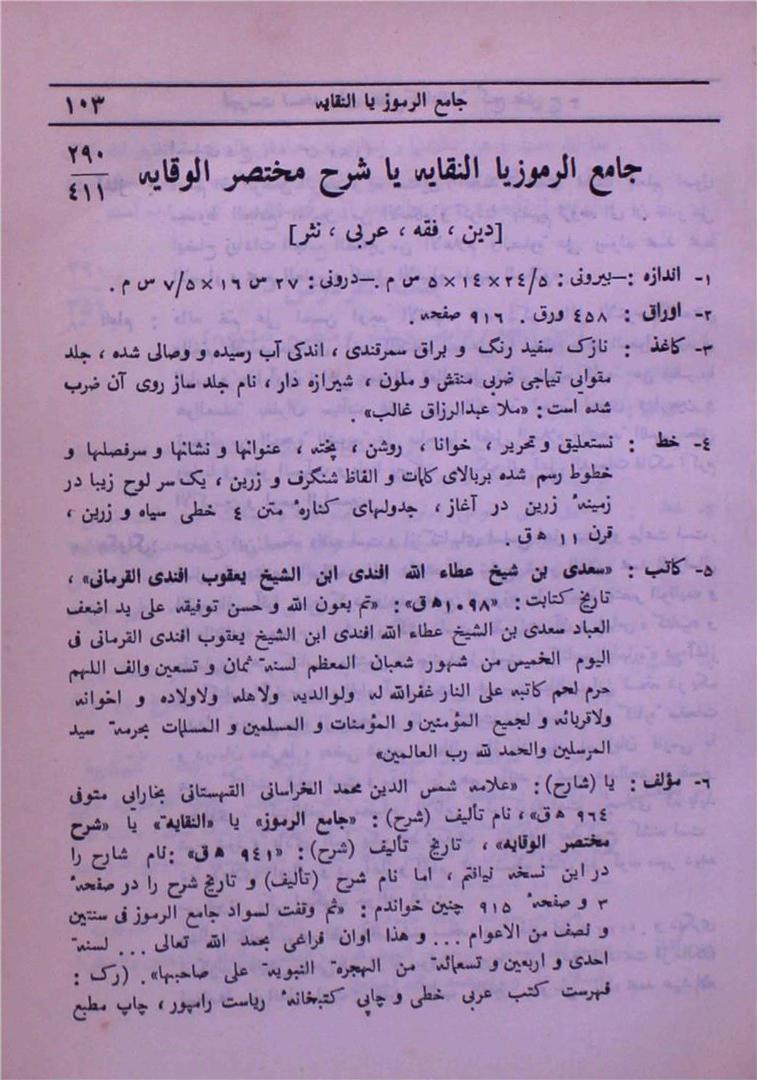 جامع الرموز یا النقایه ۱۰۳
۲۹۰
جامع الرموزیا النقایه یا شرح مختصر الوقایه
٤۱۱
[دین ، فقه ، عربی ، نثر]
۱- اندازه : —بیرونی : ۲٤/۵ × ۱٤ × ۵ س م .—درونی : ۲۷ س ۱٦ × ۷/۵ س م .
۲- اوراق : ٤۵۸ ورق . ۹۱٦ صفحه .
۳- کاغذ : نازک سفید رنگ و براق سمرقندی ، اندکی آب رسیده و وصالی شده ، جلد
مقوایی تیاجی ضربی منقش و ملون ، شیرازه دار ، نام جلد ساز روی آن ضرب
شده است : «ملا عبدالرزاق غالب» .
٤- خط : نستعلیق و تحریر ، خوانا ، روشن ، پخته ، عنوانها و نشانها و سرفصلها و
خطوط رسم شده بربالای کلمات و الفاظ شنگرف و زرین ، یک سر لوح زیبا در
زمینهٔ زرین در آغاز ، جدولهای کنارهٔ متن ٤ خطی سیاه و زرین ،
قرن ۱۱ ه ق .
۵- کاتب : «سعدی بن شیخ عطاء الله افندی ابن الشیخ یعقوب افندی القرمانی» ،
تاریخ کتابت : «۱۰۹۸ ه ق» : «تم بعون الله و حسن توفیقه علی ید اضعف
العباد سعدی بن الشیخ عطاء الله افندی ابن الشیخ یعقوب افندی القرمانی فی
الیوم الخمیس من شهور شعبان المعظم لسنة ثمان و تسعین والف اللهم
حرم لحم کاتبه علی النار غفرالله له ولوالدیه ولاهله ولاولاده و اخوانه
ولاقربائه و لجمیع المؤمنین و المؤمنات و المسلمین و المسلمات بحرمة سید
المرسلین والحمد لله رب العالمین»
٦- مؤلف : یا (شارح) : «علامه شمس الدین محمد الخراسانی القهستانی بخارایی متوفی
۹٦٤ ه ق» ، نام تألیف (شرح) : «جامع الرموز» یا «النقایة» یا «شرح
مختصر الوقایه» ، تاریخ تألیف (شرح) : «۹٤۱ ه ق» : نام شارح را
در این نسخه نیافتم ، اما نام شرح (تألیف) و تاریخ شرح را در صفحهٔ
۳ و صفحهٔ ۹۱۵ چنین خواندم : «ثم وقفت لسواد جامع الرموز فی سنتین
و نصف من الاعوام ... و هذا اوان فراغی بحمد الله تعالی ... لسنة
احدی و اربعین و تسعمائة من الهجرة النبویه علی صاحبها» . (رک :
فهرست کتب عربی خطی و چاپی کتبخانهٔ ریاست رامپور ، چاپ مطبع